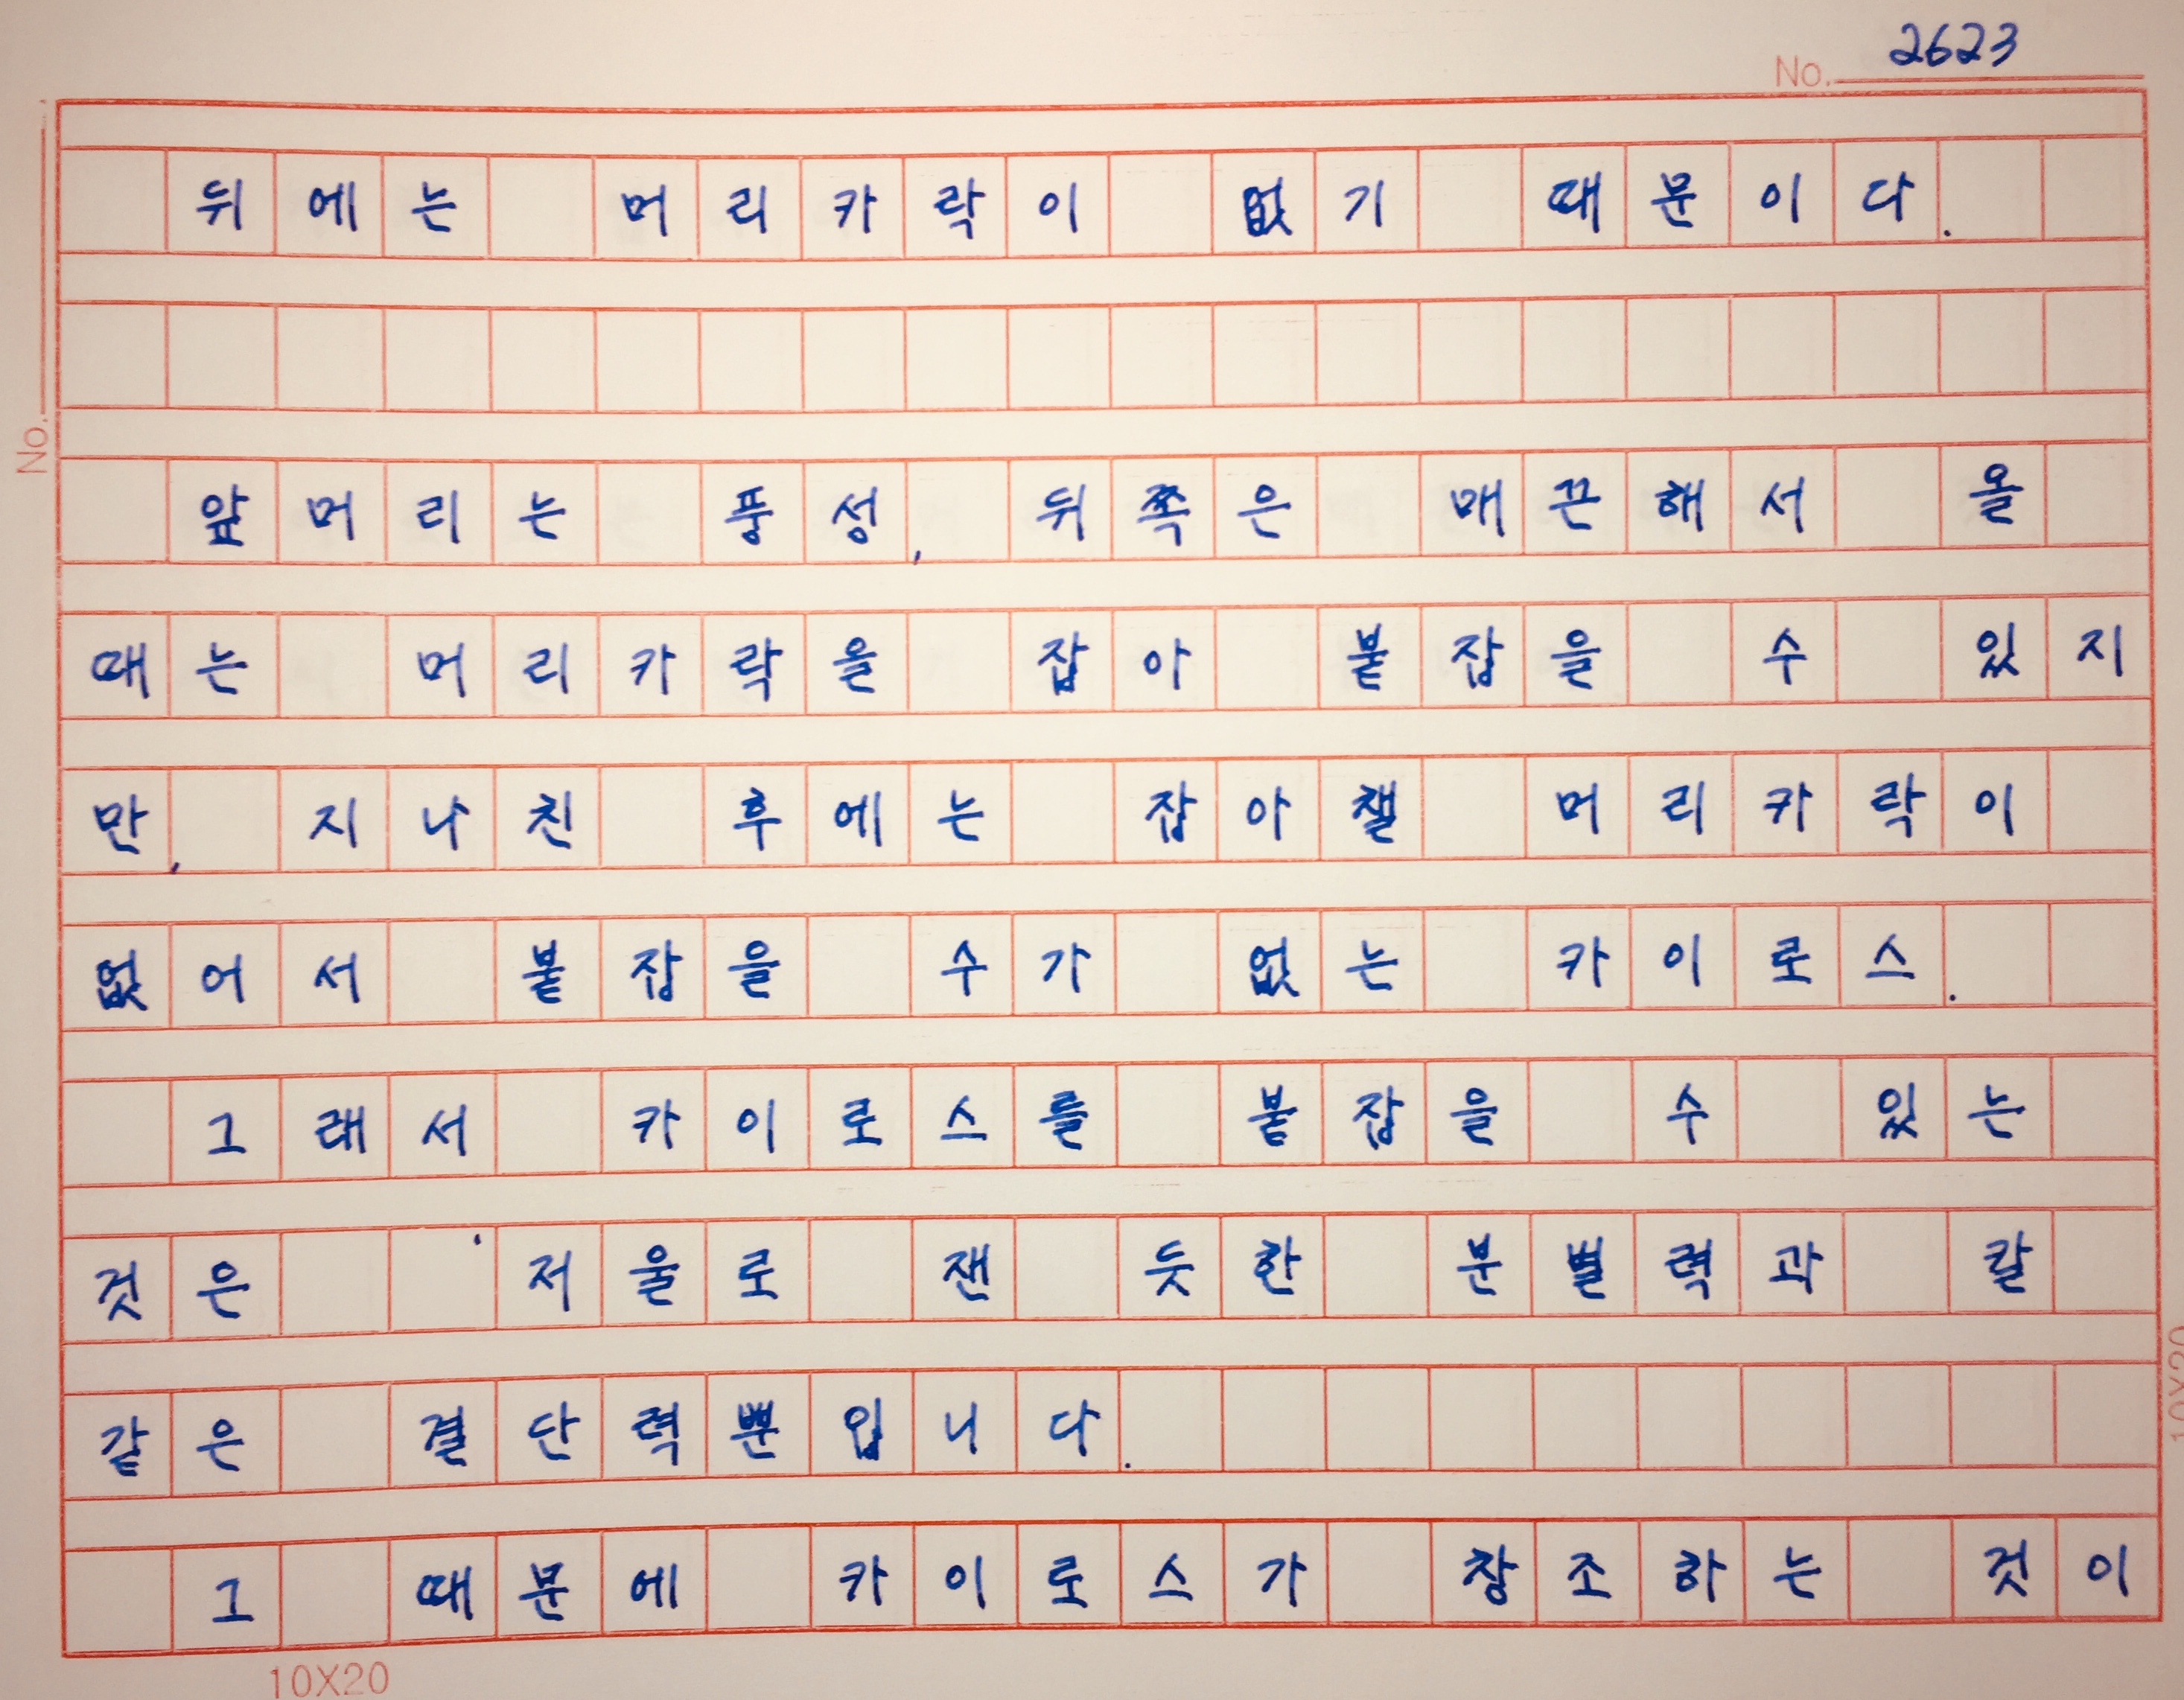 No. 2623
뒤에는 머리카락이 없기 때문이다.
앞머리는 풍성, 뒤쪽은 매끈해서 올
때는 머리카락을 잡아 붙잡을 수 있지
만, 지나친 후에는 잡아챌 머리카락이
없어서 붙잡을 수가 없는 카이로스.
그래서 카이로스를 붙잡을 수 있는
것은 '저울로 잰 듯한 분별력과 칼
같은 결단력뿐입니다.
그 때문에 카이로스가 창조하는 것이
10X20
No.
10X20